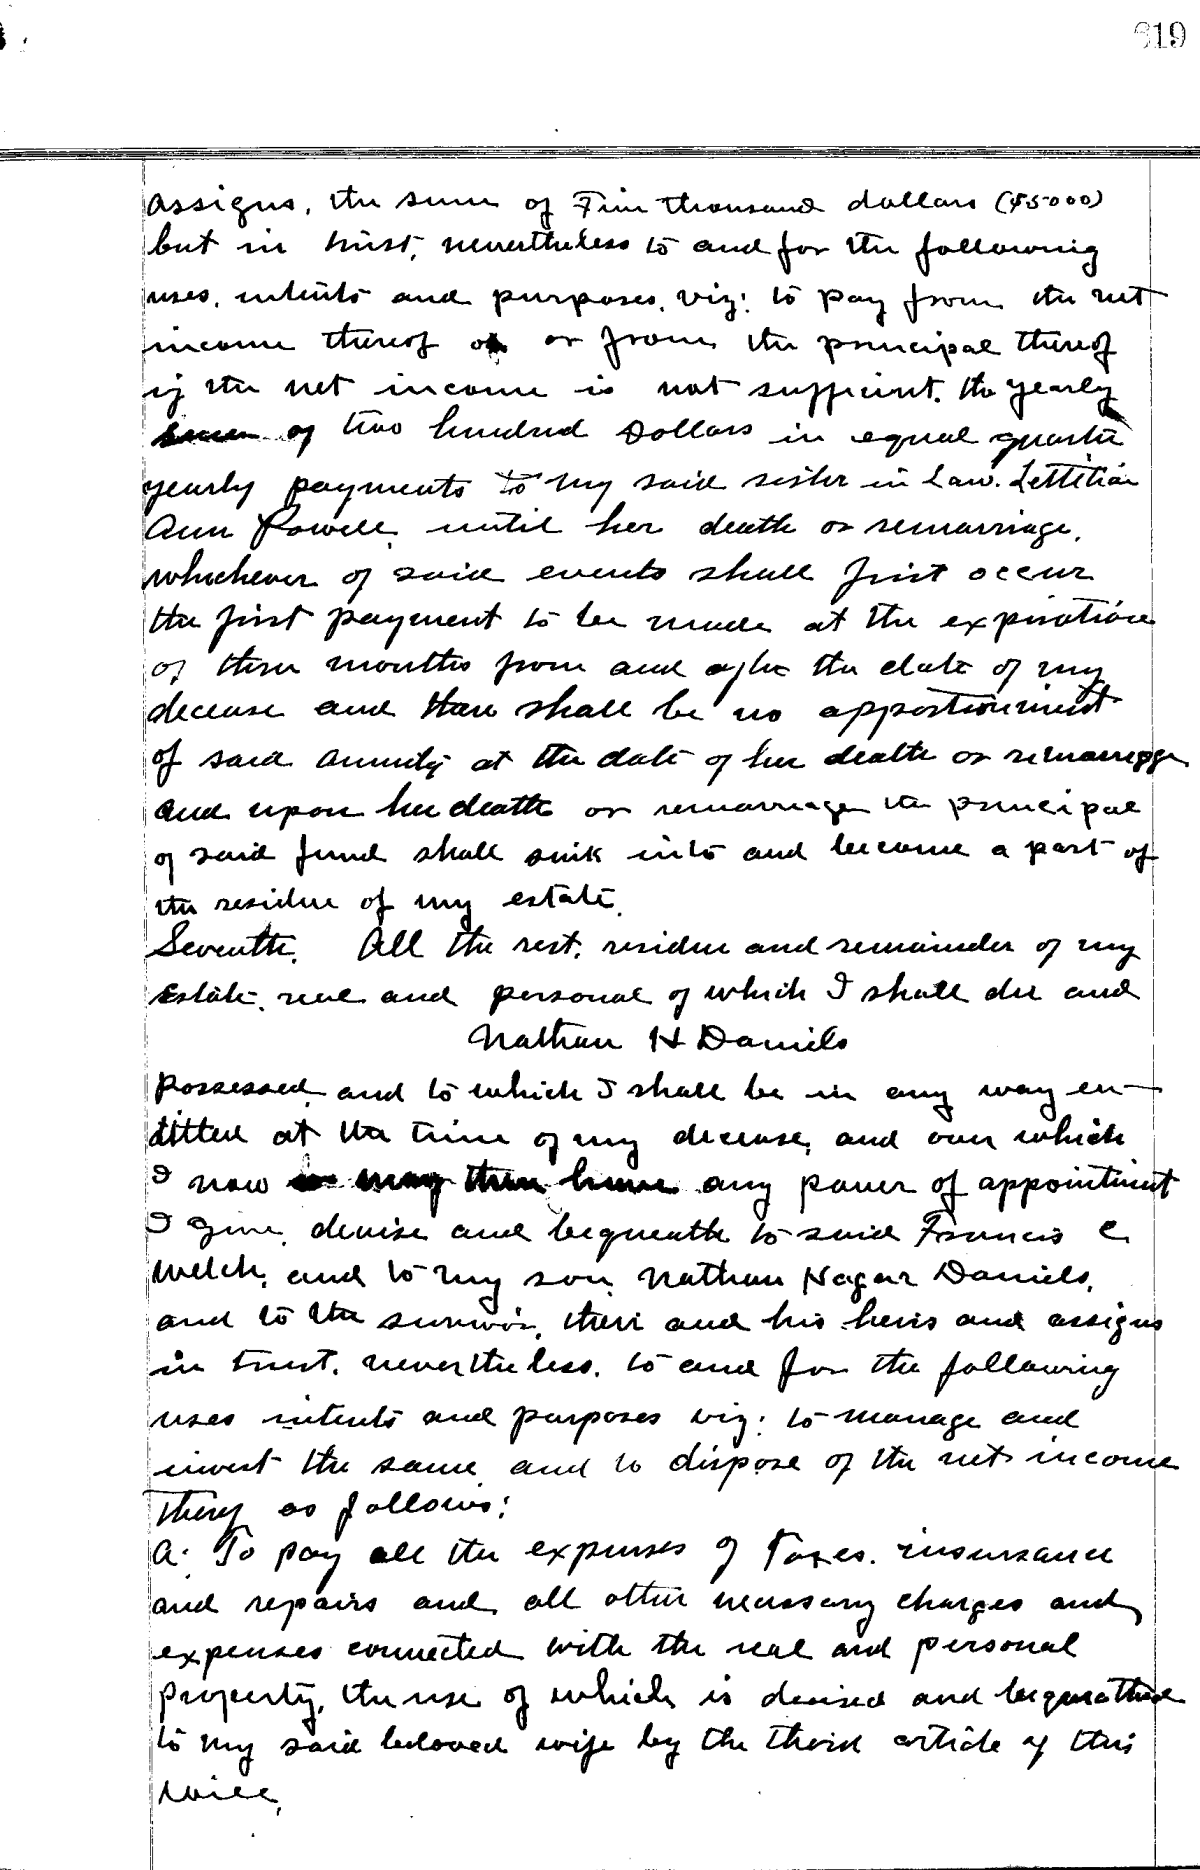 619
assigns, the sum of Five thousand dollars ($5000)
but in trust, nevertheless to and for the following
uses, intents and purposes, viz: to pay from the net
income thereof or from the principal thereof
if the net income is not sufficient, the yearly
sum of two hundred Dollars in equal quarter
yearly payments to my said sister in Law. Lettitia
Ann Powell, until her death or remarriage,
whichever of said events shall first occur
the first payment to be made at the expiration
of three months from and after the date of my
decease and there shall be no apportionment
of said annuity at the date of her death or remarriage
and upon her death or remarriage the principal
of said fund shall sink into and become a part of
the residue of my estate.
Seventh. All the rest, residue and remainder of my
Estate, real and personal of which I shall die and
Nathan H Daniels
possessed, and to which I shall be in any way en-
titled at the time of my decease, and over which
I now or may then have any power of appointment
I give, devise and bequeath to said Francis C.
Welch, and to my son, Nathan Hagar Daniels,
and to the survivor, their and his heirs and assigns
in trust, nevertheless, to and for the following
uses intents and purposes viz: to manage and
invest the same and to dispose of the net income
thereof as follows:
A. To pay all the expenses of Taxes. insurance
and repairs and all other necessary charges and
expenses connected with the real and personal
property, the use of which is devised and bequeathed
to my said beloved wife by the third article of this
will,